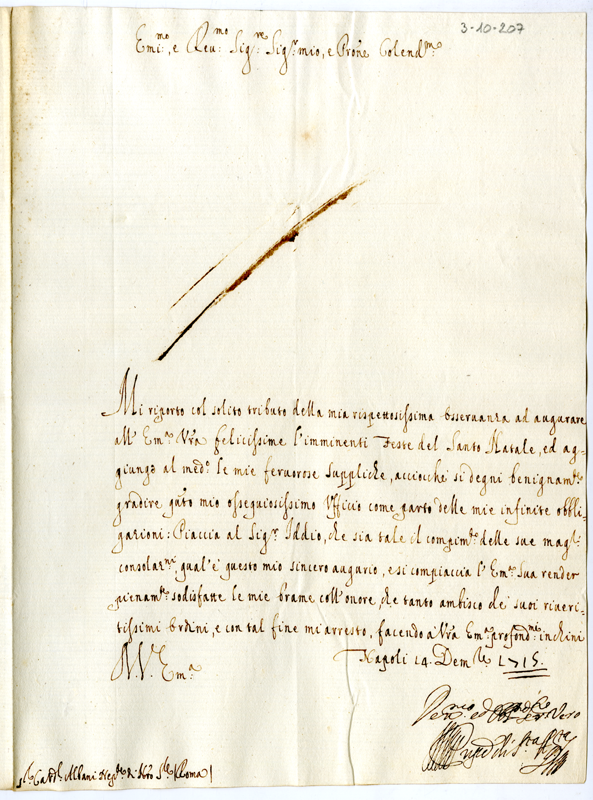 3-10-207
Emi:mo, e Reu:mo Sig:re Sig:r mio, e Prone Colendmo
Mi riporto col solito tributo della mia rispettosissima osseruanza ad augurare
all' Em:a Vra felicissime l'imminenti Feste del Santo Natale, ed ag-
giungo al med:o le mie feruorose suppliche, acciocche si degni benignam:te
gradire gsto mio ossequiosissimo Vfficio come parto delle mie infinite obbli-
gazioni: Piaccia al Sig:r Iddio, che sia tale il compim:to delle sue mag:ri
consolaz:ni qual'è questo mio sincero augurio, e si compiaccia l'Em:a Sua render
pienam:te sodisfatte le mie brame coll'onore, che tanto ambisco de' suoi riueri-
tissimi ordini, e con tal fine mi arresto, facendo a Vra Em:a profond:mi inchini
D. V. Em:a
Napoli 14. Dem:bre 1715.
Deu:mo ed Ser: Vero
S:r Card:l Albani Nep:te di Nro S:re (Roma)